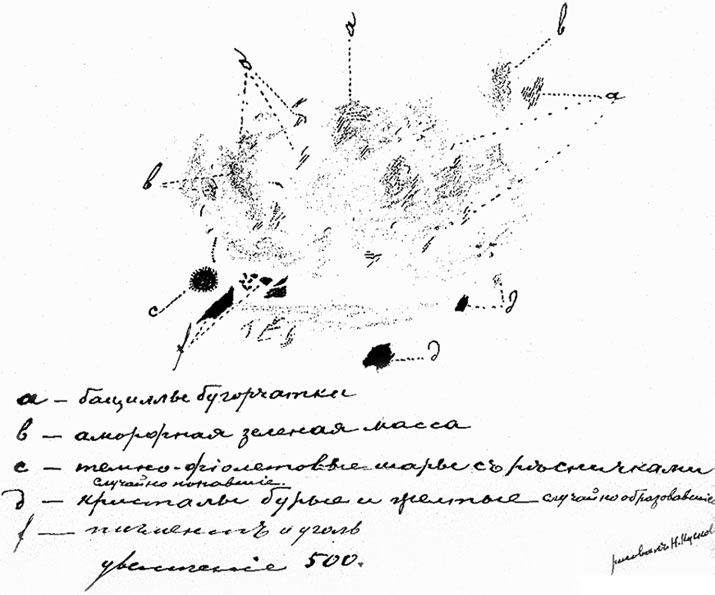 а
в
б
а
в
с
f
д
д
а — бациллы бугорчатки
в — аморфная зеленая масса
с — темно-фіолетовые шары съ рѣсничками
случайно попавшіе
д — кристалы бурые и желтые случайно образовавшіе
f — пигментъ и уголь
увеличеніе 500.
рисовалъ Н.